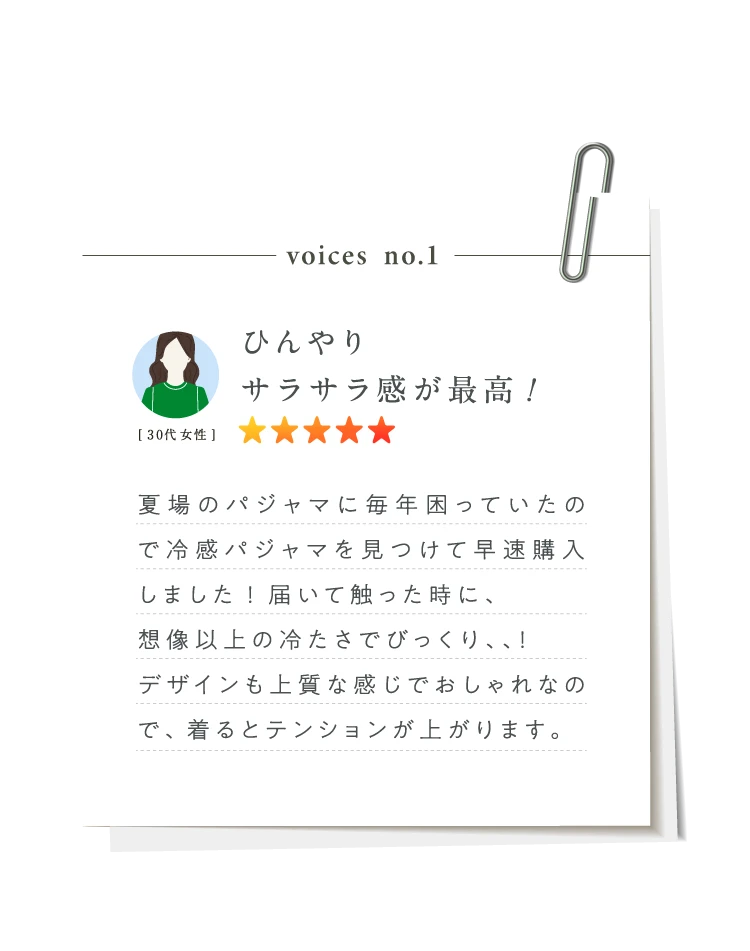 voices no.1
ひんやり
サラサラ感が最高！
[ 30代 女性 ]
夏場のパジャマに毎年困っていたの
で冷感パジャマを見つけて早速購入
しました！届いて触った時に、
想像以上の冷たさでびっくり、、！
デザインも上質な感じでおしゃれなの
で、着るとテンションが上がります。